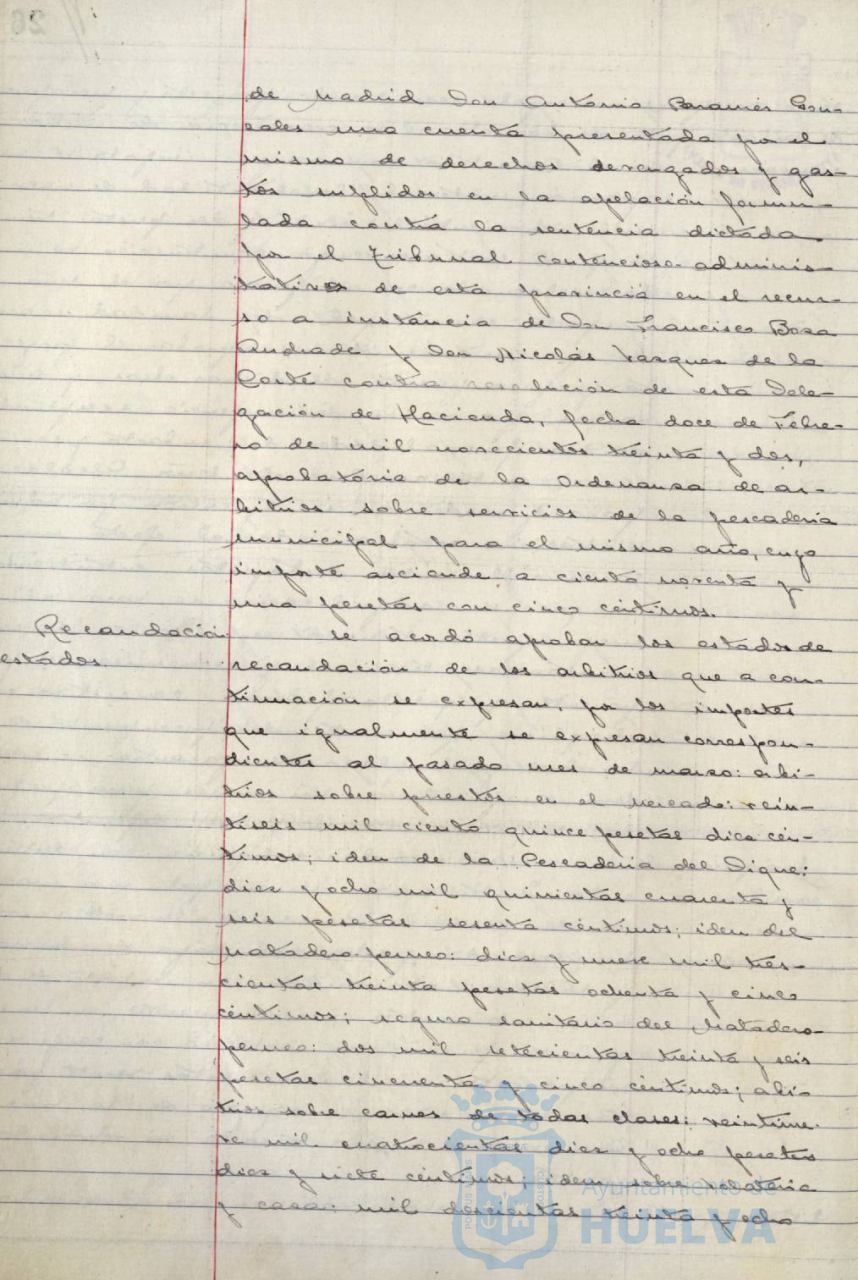 de Madrid Don Antonio Gon-
zales una cuenta presentada por el
mismo de derechos devengados y gas-
tos suplidos en la apelación formu-
lada contra la sentencia dictada
por el Tribunal contencioso-adminis-
trativo de esta provincia en el recur-
so a instancia de Don Francisco Boza
Andrade y Don Nicolás Vazquez de la
Corte contra resolución de esta Dele-
gación de Hacienda, fecha doce de Febre-
ro de mil novecientos treinta y dos,
aprobatoria de la Ordenanza de ar-
bitrios sobre servicios de la pescadería
municipal para el mismo año, cuyo
importe asciende a ciento noventa y
una pesetas con cinco céntimos.
Recaudación
estados.
Se acordó aprobar los estados de
recaudación de los arbitrios que a con-
tinuación se expresan, por los importes
que igualmente se expresan correspon-
dientes al pasado mes de marzo: arbi-
trios sobre puestos en el mercado: vein-
tiseis mil ciento quince pesetas diez cén-
timos; idem de la Pescaderia del Dique:
diez y ocho mil quinientas cuarenta y
seis pesetas sesenta céntimos; idem del
Matadero perneo: diez y nueve mil tres-
cientas treinta pesetas ochenta y cinco
céntimos; seguro sanitario del Matadero
perneo: dos mil setecientas treinta y seis
pesetas cincuenta y cinco céntimos; arbi-
trios sobre carnes de todas clases: veintinue-
ve mil cuatrocientas diez y ocho pesetas
diez y siete céntimos; idem sobre volateria
y caza: mil doscientas treinta y ocho
Ayuntamiento de
HUELVA